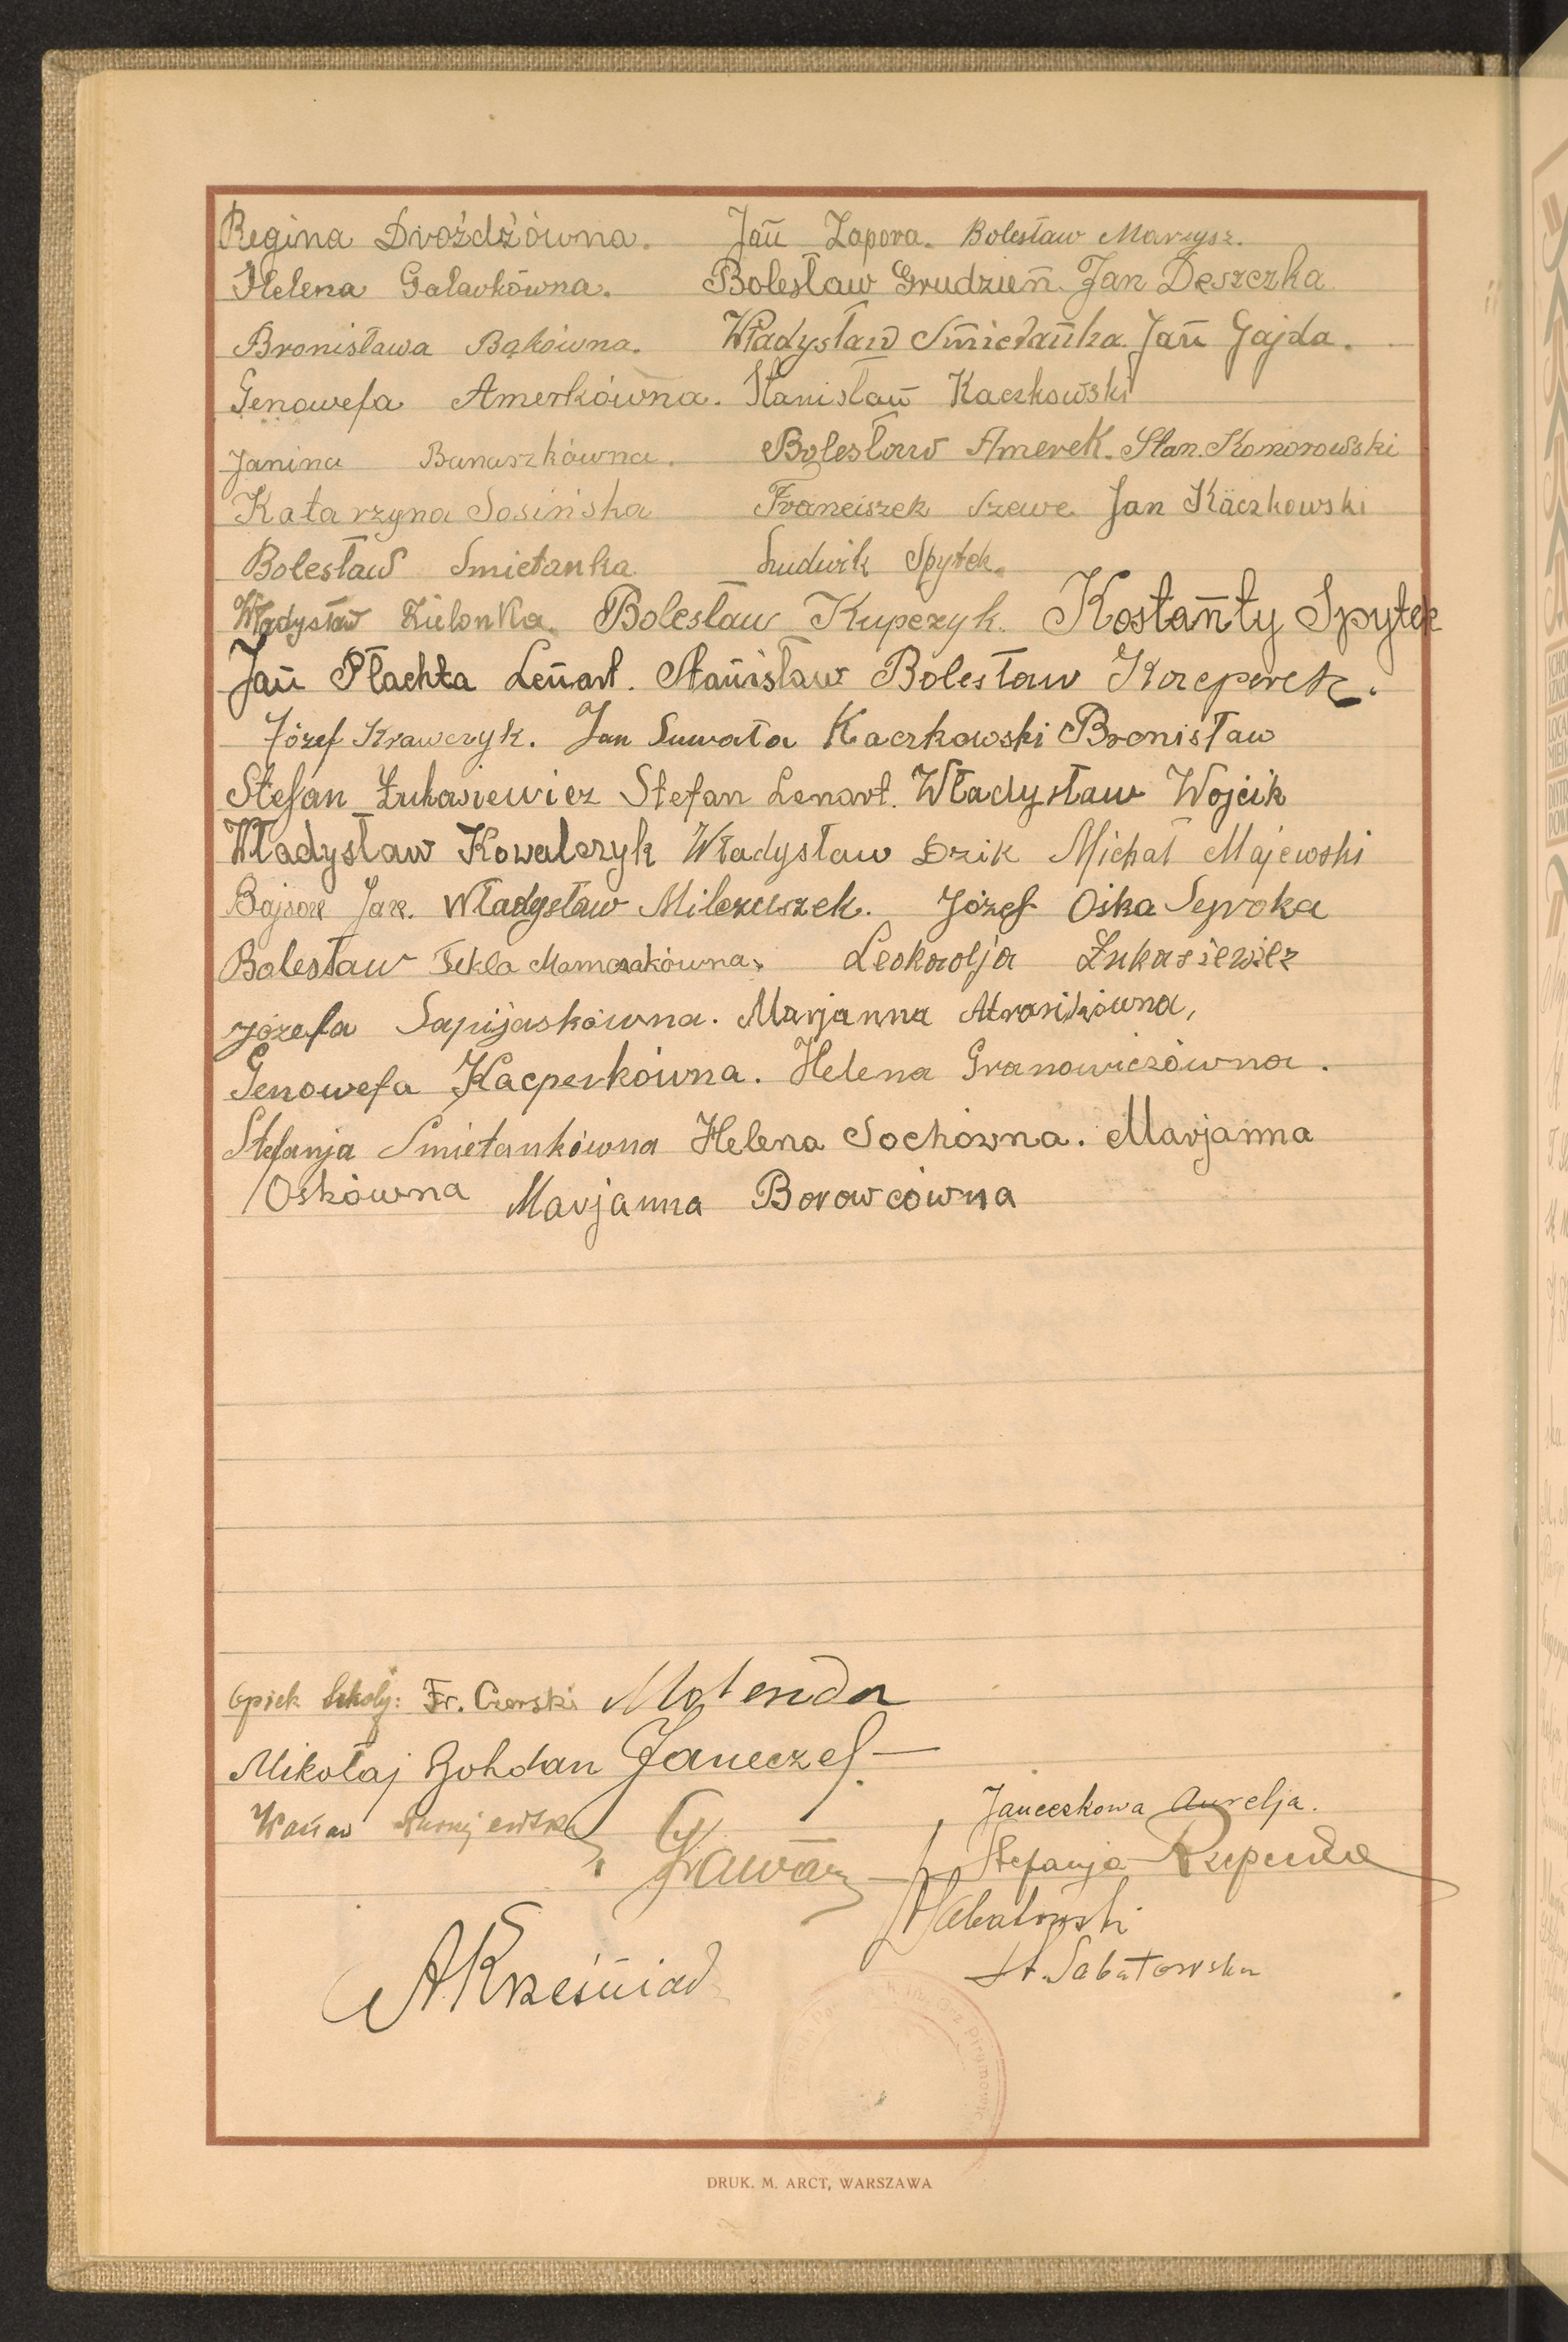 Regina Drożdżówna. Jan Zapora. Bolesław Marzysz.
Helena Galarkówna. Bolesław Grudzień Jan Deszczka
Bronisława Bąkówna. Władysław Śmietanka Jan Gajda.
Genowefa Amerkówna. Stanisław Kaczkowski
Janina Banaszkówna. Bolesław Amerek. Stan. Komorowski
Katarzyna Sosińska Franciszek Szewc Jan Kaczkowski
Bolesław Smietanka Ludwik Spytek.
Władysław Zielonka. Bolesław Kupczyk. Kostanty Spytek
Jan Płachta Lenart. Stanisław Bolesław Kacperek.
Józef Krawczyk. Jan Suwała Kaczkowski Bronisław
Stefan Łukasiewicz Stefan Lenart. Władysław Wojcik
Władysław Kowalczyk Władysław Dzik Michał Majewski
Jan. Władysław Milczuszek. Józef Ośka Seroka
Bolesław Tekla Leokadja Łukasiewicz
Józefa Sapijaskówna. Marjanna
Genowefa Kacperkówna. Helena Granowiczówna.
Stefanja Smietankówna Helena Sochówna. Marjanna
Oskówna Marjanna Borowcówna
Opiek Szkoły: Fr. Czerski Molenda
Mikołaj Bohdan Janeczek
Janeczkowa Aurelja.
Gawar Stefanja
Sabatowski
St. Sabatowska
DRUK. M. ARCT, WARSZAWA